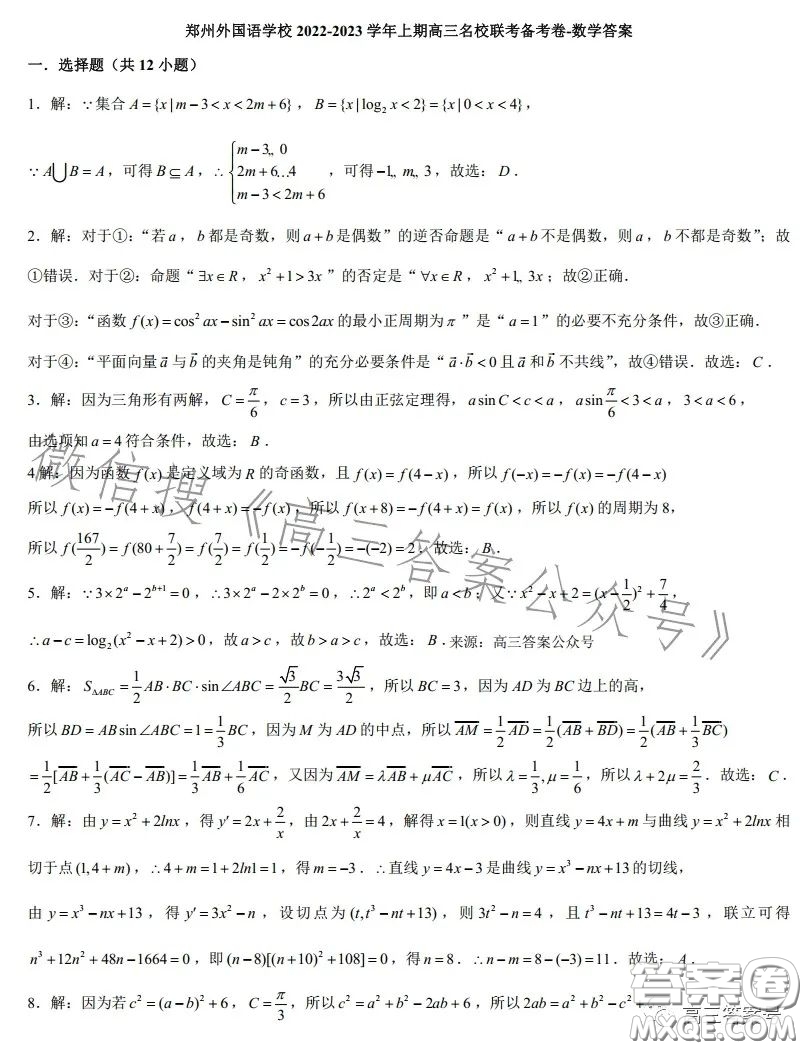 郑州外国语学校 2022-2023 学年上期高三名校联考备考卷-数学答案
一．选择题（共 12 小题）
1．解：∵集合 A={x|m−3<x<2m+6}，B={x|log₂x<2}={x|0<x<4}，
∵A⋃B=A，可得 B⊆A，∴{m−3,, 0 2m+6…4 m−3<2m+6，可得−1,, m,, 3，故选：D．
2．解：对于①：“若 a，b 都是奇数，则 a+b 是偶数”的逆否命题是“a+b 不是偶数，则 a，b 不都是奇数”；故
①错误．对于②：命题“∃x∈R，x²+1>3x”的否定是“∀x∈R，x²+1,, 3x”；故②正确．
对于③：“函数 f(x)=cos²ax−sin²ax=cos2ax 的最小正周期为π”是“a=1”的必要不充分条件，故③正确．
对于④：“平面向量 a⃗ 与 b⃗ 的夹角是钝角”的充分必要条件是“a⃗·b⃗<0 且 a⃗ 和 b⃗ 不共线”，故④错误．故选：C．
3．解：因为三角形有两解，C=π/6，c=3，所以由正弦定理得，asinC<c<a，asinπ/6<3<a，3<a<6，
由选项知 a=4 符合条件，故选：B．
4 解：因为函数 f(x) 是定义域为 R 的奇函数，且 f(x)=f(4−x)，所以 f(−x)=−f(x)=−f(4−x)
所以 f(x)=−f(4+x)，f(4+x)=−f(x)，所以 f(x+8)=−f(4+x)=f(x)，所以 f(x) 的周期为 8，
所以 f(167/2)=f(80+7/2)=f(7/2)=f(1/2)=−f(−1/2)=−(−2)=2．故选：B．
5．解：∵3×2ᵃ−2ᵇ⁺¹=0，∴3×2ᵃ−2×2ᵇ=0，∴2ᵃ<2ᵇ，即 a<b；又∵x²−x+2=(x−1/2)²+7/4，
∴a−c=log₂(x²−x+2)>0，故 a>c，故 b>a>c，故选：B．来源：高三答案公众号
6．解：S△ABC=1/2AB·BC·sin∠ABC=√3/2BC=3√3/2，所以 BC=3，因为 AD 为 BC 边上的高，
所以 BD=ABsin∠ABC=1=1/3BC，因为 M 为 AD 的中点，所以 AM=1/2AD=1/2(AB+BD)=1/2(AB+1/3BC)
=1/2[AB+1/3(AC−AB)]=1/3AB+1/6AC，又因为 AM=λAB+μAC，所以λ=1/3,μ=1/6，所以λ+2μ=2/3．故选：C．
7．解：由 y=x²+2lnx，得 y′=2x+2/x，由 2x+2/x=4，解得 x=1(x>0)，则直线 y=4x+m 与曲线 y=x²+2lnx 相
切于点 (1,4+m)，∴4+m=1+2ln1=1，得 m=−3．∴直线 y=4x−3 是曲线 y=x³−nx+13 的切线，
由 y=x³−nx+13，得 y′=3x²−n，设切点为 (t,t³−nt+13)，则 3t²−n=4，且 t³−nt+13=4t−3，联立可得
n³+12n²+48n−1664=0，即 (n−8)[(n+10)²+108]=0，得 n=8．∴n−m=8−(−3)=11．故选：A．
8．解：因为若 c²=(a−b)²+6，C=π/3，所以 c²=a²+b²−2ab+6，所以 2ab=a²+b²
微信搜《高三答案公众号》
答案圈
高三答案号
MXQE.COM